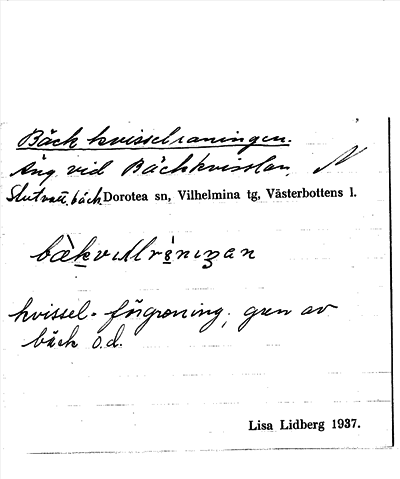 Bäckkvisselraningen.
Äng vid Bäckkvisslan. N
bäck Dorotea sn, Vilhelmina tg, Västerbottens l.
kvissel = förgrening, gren av
bäck o.d.
Lisa Lidberg 1937.